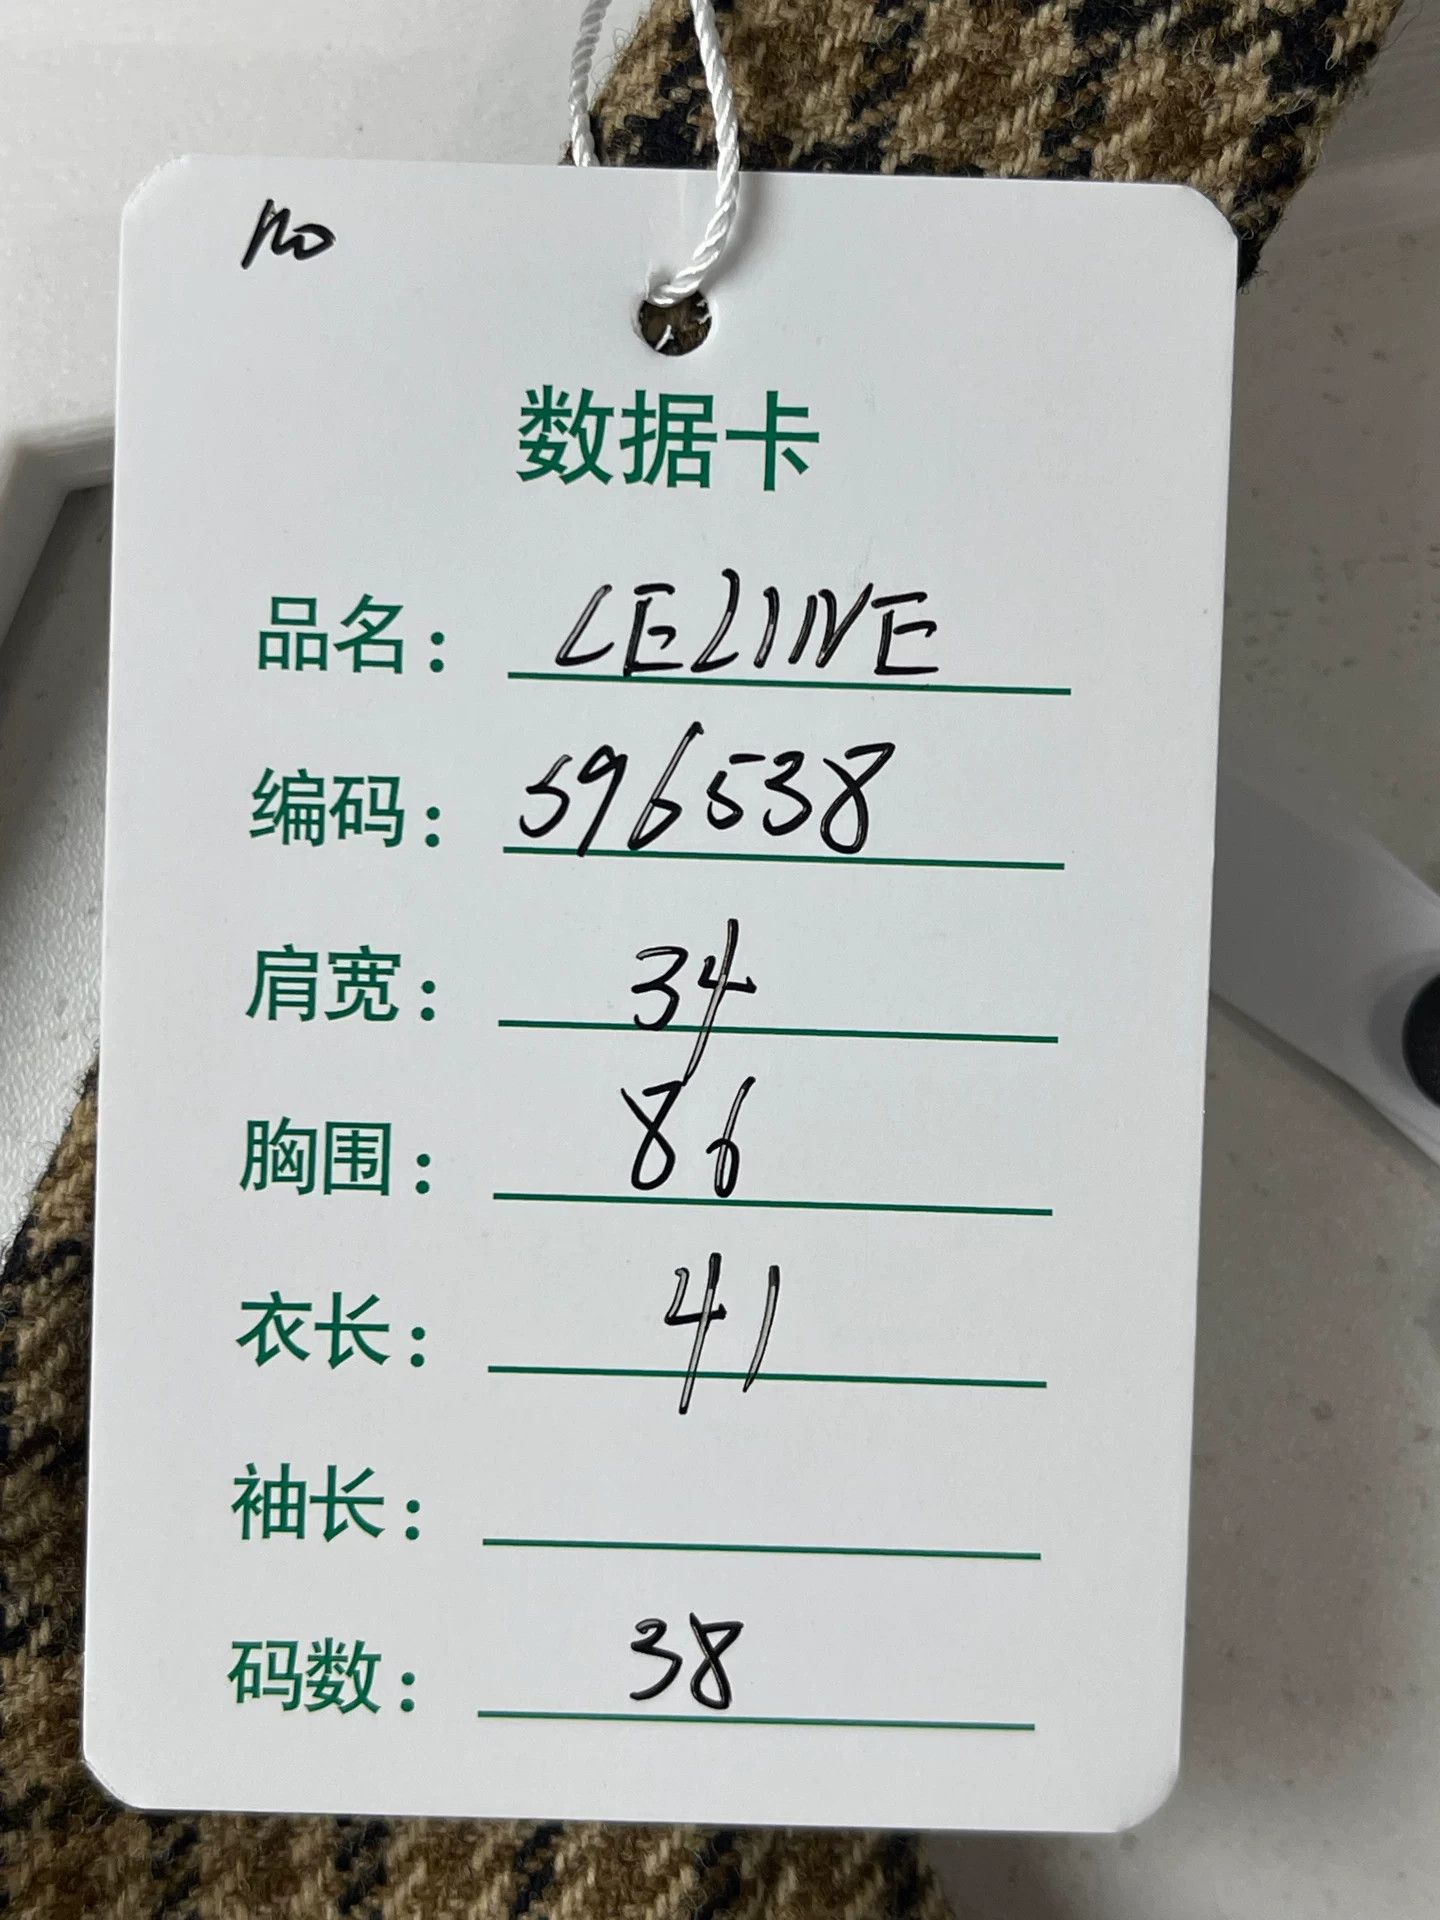 数据卡
品名： CELINE
编码： 596538
肩宽： 34
胸围： 86
衣长： 41
袖长：
码数： 38